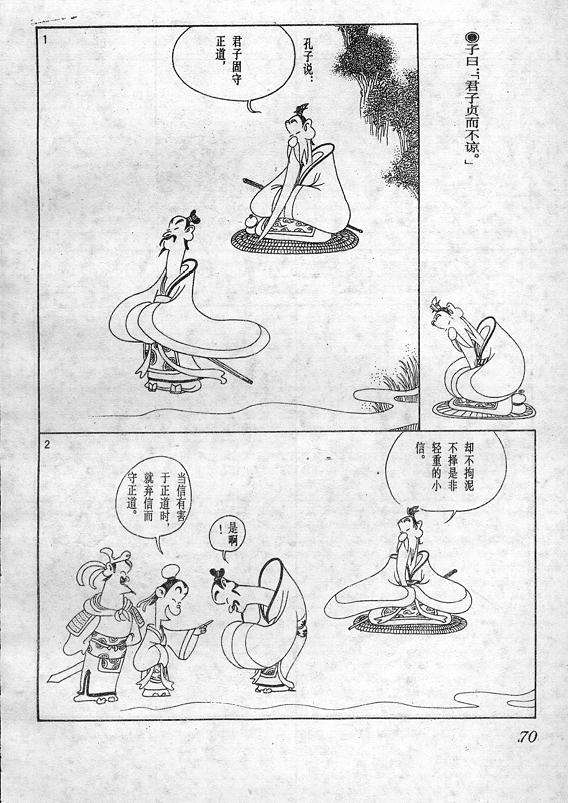 ●子曰：「君子贞而不谅。」
1
孔子说：
君子固守
正道，
2
却不拘泥
不择是非
轻重的小
信。
是啊
！
当信有害
于正道时，
就弃信而
守正道。
70